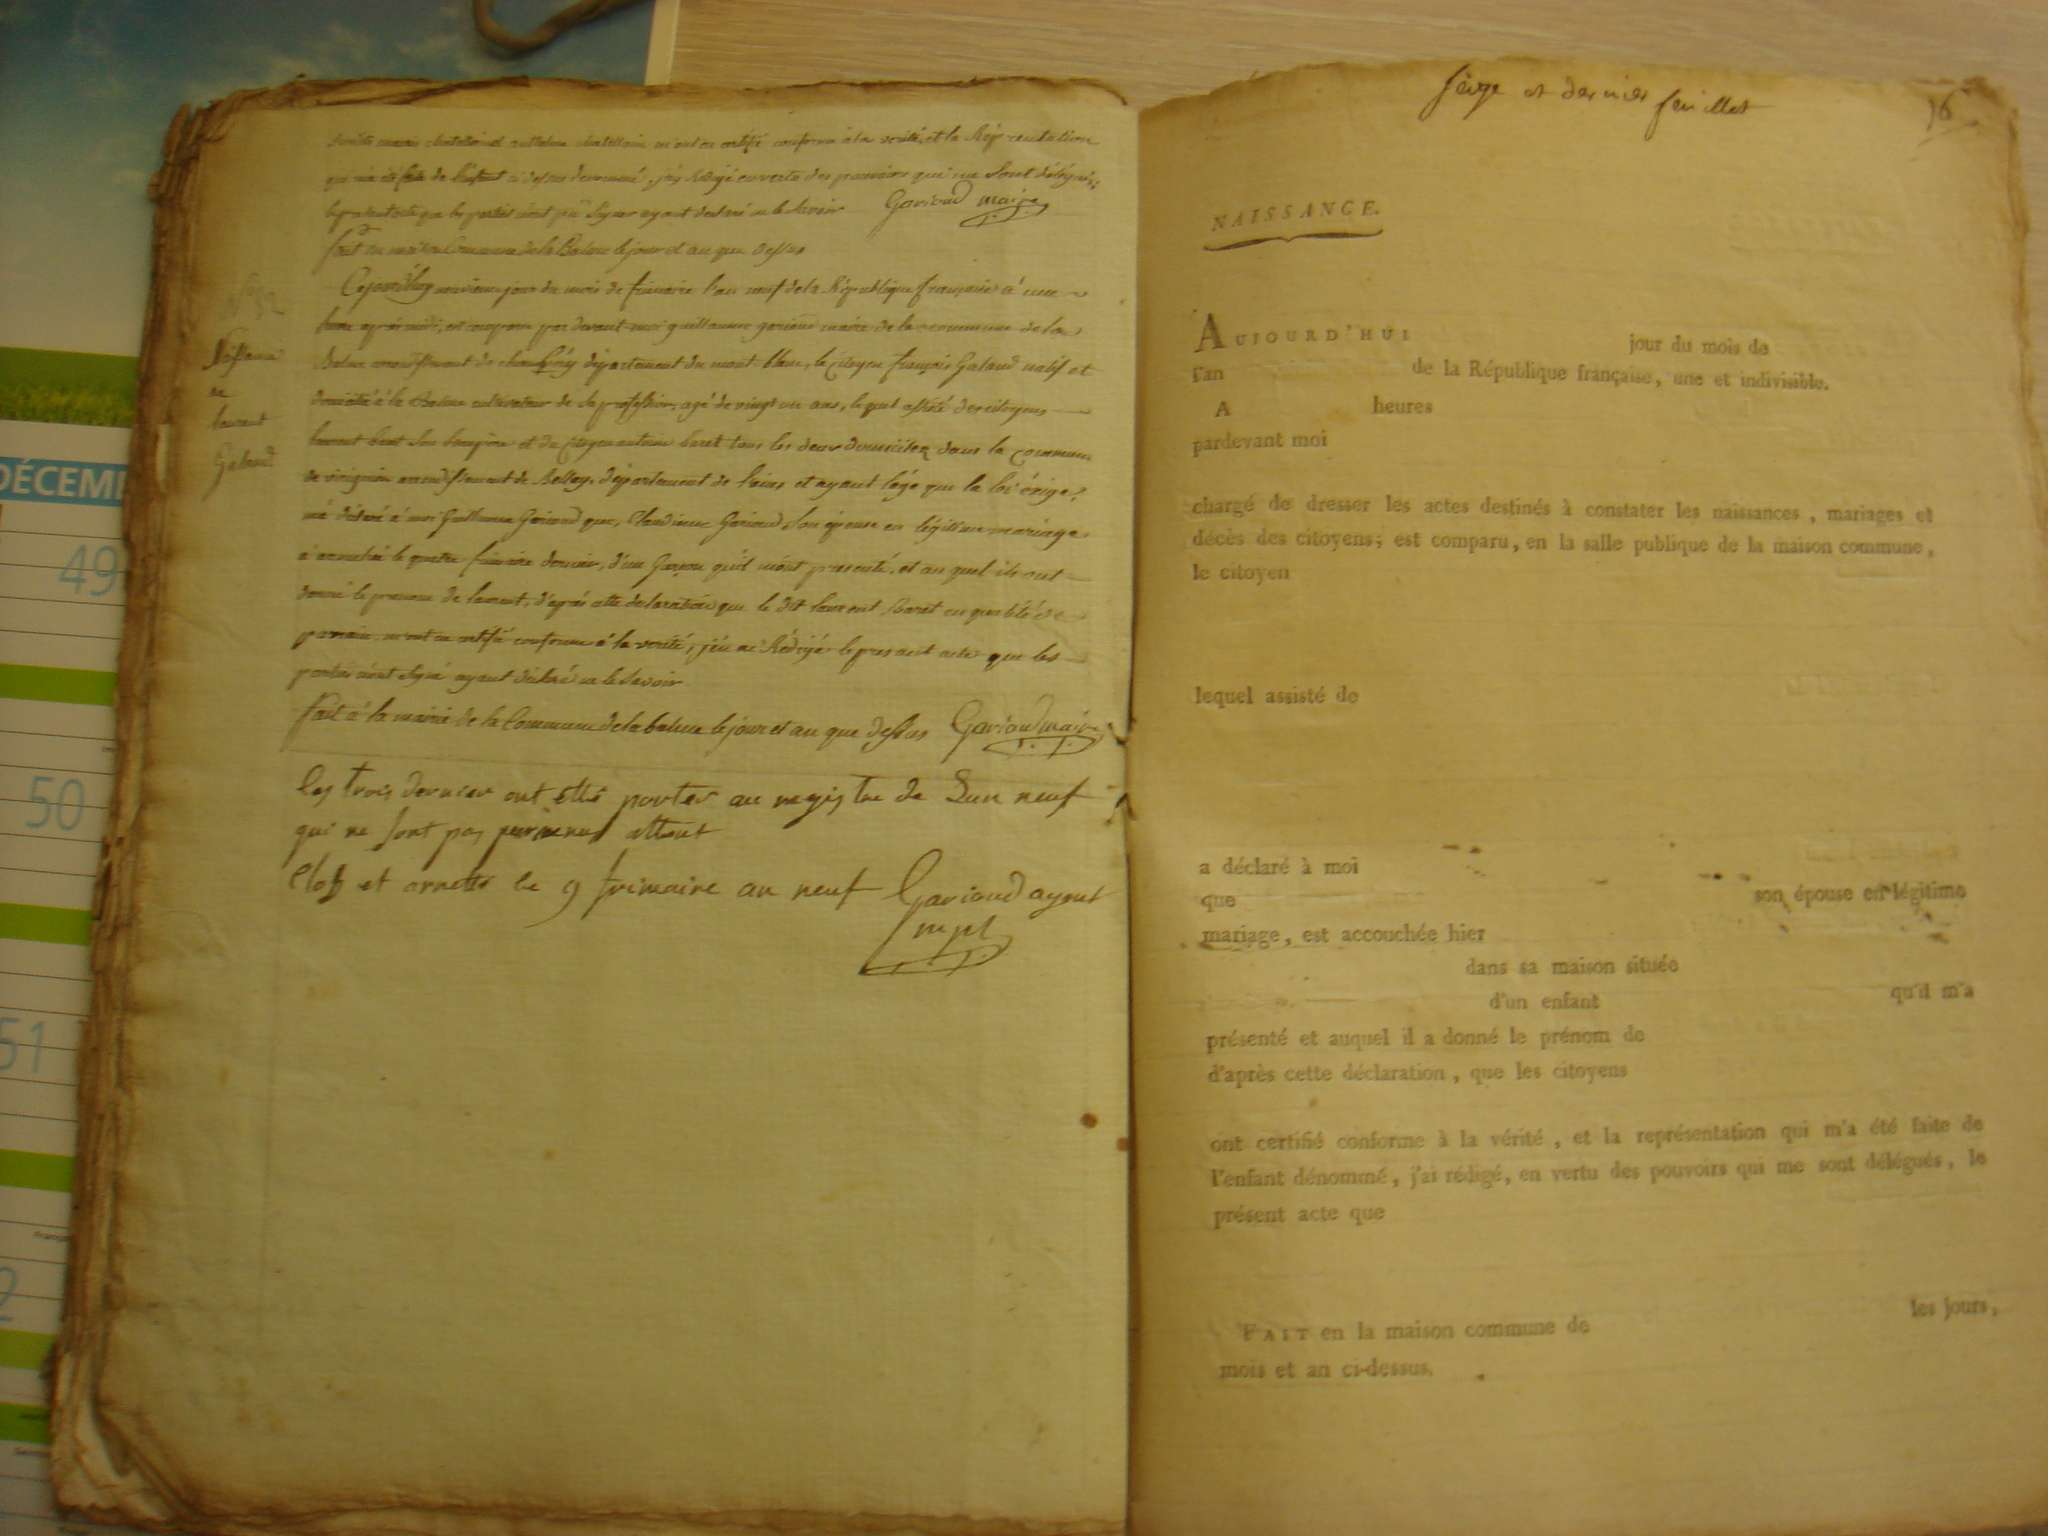 qui m'a été faite de l'enfant ci dessus denommé, j'ay Rédigé en vertu des pouvoirs qui me sont délégués
le present acte que les parties n'ont pu signer ayant declaré ne le savoir Garioud maire
fait en maison Commune de la Balme le jour et an que dessus
Naissance
de
laurent
Galaud
Cejourd'huy neuvieme jour du mois de frimaire l'an neuf de la République française à une
heure après midi, est comparu par devant moi guillaume garioud maire de la commune de la
Balme arrondissement de chambéry département du mont blanc, le citoyen françois Galaud natif et
domicilié à la Balme cultivateur de sa profession, agé de vingt un ans, lequel assisté des citoyens
laurent baret son beaupère et du Citoyen antoine baret tous les deux domiciliez dans la commune
de virignin arrondissement de Belley, département de l'ain, et ayant l'age que la loi exige,
m'a déclaré à moi Guillaume Garioud que, Claudine Garioud son épouse en légitime mariage
à accouché le quatre frimaire dernier, d'un Garçon qu'il m'ont presenté, et au quel ils ont
donné le prenom de laurent, d'après cette declaration que le dit laurent baret en qualité de
parrain, m'ont en certifié conforme à la verité, j'en ai Rédigé le present acte que les
parties n'ont signé ayant déclaré ne le savoir
fait à la mairie de la Commune de la balme le jour et an que dessus Garioud maire
les trois dernier ont étté porter au registre de Lan neuf
qui ne sont pas parvenus
Clos et arretté le 9 frimaire an neuf Garioud
seize et dernier feuillet
16
NAISSANCE.
AUJOURD'HUI jour du mois de
l'an de la République française, une et indivisible.
A heures
pardevant moi
chargé de dresser les actes destinés à constater les naissances, mariages et
décès des citoyens; est comparu, en la salle publique de la maison commune,
le citoyen
lequel assisté de
a déclaré à moi
que son épouse en légitime
mariage, est accouchée hier
dans sa maison située
d'un enfant qu'il m'a
présenté et auquel il a donné le prénom de
d'après cette déclaration, que les citoyens
ont certifié conforme à la vérité, et la représentation qui m'a été faite de
l'enfant dénommé, j'ai rédigé, en vertu des pouvoirs qui me sont délégués, le
présent acte que
FAIT en la maison commune de les jours,
mois et an ci-dessus.
DÉCEM
49
50
51
2